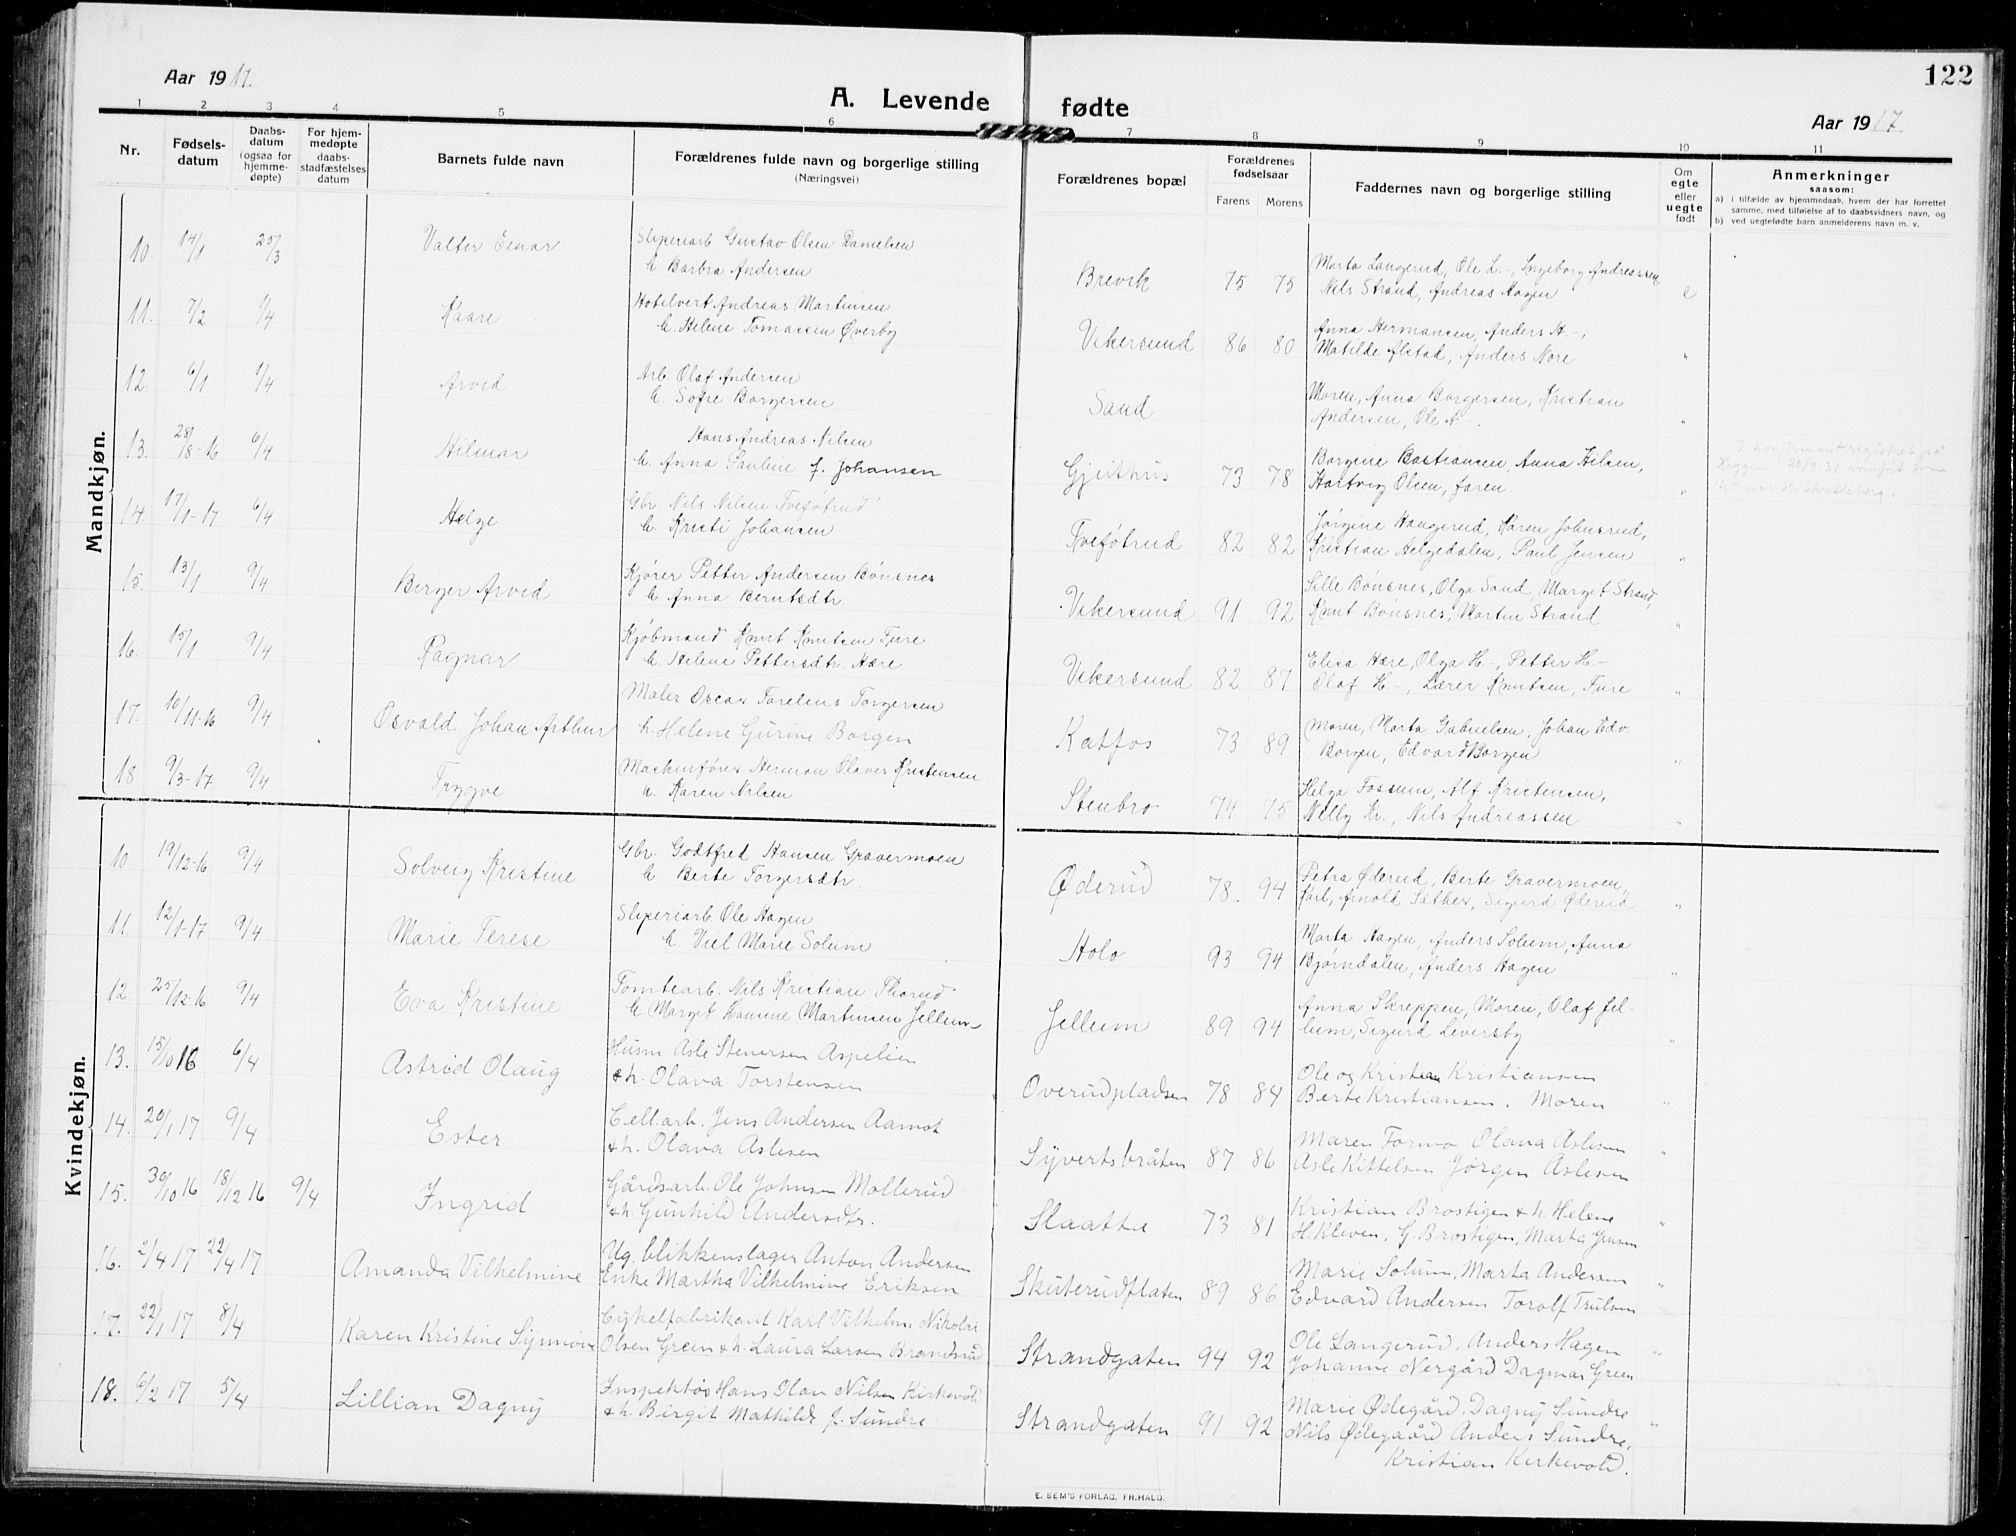 122
Aar 1917.
A. Levende fødte
Aar 1917
1 2 3 4 5 6 7 8 9 10 11
Nr.
Fødsels-
datum
Daabs-
datum
(ogsaa for
hjemme-
døpte)
For hjem-
medøpte
daabs-
stadfæstelses
datum
Barnets fulde navn
Forældrenes fulde navn og borgerlige stilling
(Næringsvei)
Forældrenes bopæl
Forældrenes
fødselsaar
Farens Morens
Faddernes navn og borgerlige stilling
Om
egte
eller
uegte
født
Anmerkninger
saasom:
a) i tilfælde av hjemmedaab, hvem der har forrettet
samme, med tilføielse af to daabsvidners navn, og
b) ved uegtefødte barn anmelderens navn m. v.
Mandkjøn.
10. 14/1 25/3 Valter Einar
Sliperiarb Gustav Olsen Danielsen
h. Barbra Andersen
Brevik 75 75
Marta Langerud, Ole L-, Ingeborg Andreassen
Nils Strand, Andreas Hagen e
11. 7/2 1/4 Kaare
Hotelvert Andreas Martinsen
h. Helene Tomassen Øverby
Vikersund 86 80
Anna Hermansen, Anders H-,
Matilde Alstad, Anders Nore "
12. 6/1 1/4 Arvid
Arb. Olaf Andersen
h. Sofie Borgersen
Sand
Moren, Anna Borgersen, Kristian
Andersen, Ole A-. "
13. 28/8-16 6/4 Hilmar
Hans Andreas Nilsen
h. Anna Pauline f. Johansen
Gjeithus 73 78
Borgine Bastiansen, Anna Hilsen,
Hartvig Olsen, faren. "
I konfirmantregistret på
20/9.31 innført som
14. 17/1-17 6/4 Helge
Gbr. Nils Nilsen Tveføtrud
h. Kristi Johansen
Tveføtrud 82 82
Jørgine Haugerud, Karen Johnsrud,
Kristian Helgedalen, Paul Jensen "
15. 13/1 9/4 Birger Arvid
Kjører Petter Andersen Bönsnes
h. Anna Berntsdtr
Vikersund 91 92
Sille Bönsnes, Olga Sand, Marget Strand,
Knut Bönsnes, Martin Strand "
16. 15/1 9/4 Ragnar
Kjøbmand Knut Knutsen Fure
h. Helene Pettersdtr. Hære
Vikersund 82 87
Elisa Hære, Olga H-, Petter H-
Olaf H-, Lærer Knutsen, Fure "
17. 10/11-16 9/4 Osvald Johan Arthur
Maler Oscar Torelius Torgersen
h. Helene Gurine Borgen
Katfos 73 89
Moren, Marta Gabrielsen, Johan Edv.
Borgen, Edvard Borgen "
18 9/3-17 9/4 Trygve
Maskinfører Herman Olaves Kristensen
h. Karen Nilsen
Stenbro 74 75
Helga Fossum, Alf Kristensen,
Nelly Kr., Nils Andreassen "
Kvindekjøn.
10. 19/12-16 9/4 Solveig Kristine
Gbr. Godtfred Hansen Gravermoen
h. Berte Torgersdtr.
Øderud 78. 94
Petra Øderud, Berte Gravermoen,
Karl, Arnold Sæther, Sigurd Øderud "
11. 12/1-17 9/4 Marie Terese
Sliperiarb. Ole Hagen
h Viel Marie Solum
Holo 93 94
Marta Hagen, Anders Solum, Anna
Bjørndalen, Anders Hagen "
12. 25/12-16 9/4 Eva Kristine
Tomtearb. Nils Kristian Thorud
h Marget Hansine Martensen Jellum
Jellum 89 94
Anna Skreppen, Moren, Olaf Jel-
lum, Sigurd Leversby "
13. 15/10 16 6/4 Astrid Olaug
Husm. Asle Stenersen Aspelien
& h. Olava Torstensen
Overudpladsen 78 84
Ole og Kristian Kristiansen
Berte Kristiansen. Moren "
14. 20/1 17 9/4 Ester
Cell.arb. Jens Andersen Aamot
& h. Olava Aslesen
Syvertsbråten 87 86
Maren Formo Olava Aslesen
Asle Kittelsen Jørgen Aslesen "
15. 30/10 16 18/12 16 9/4 Ingrid
Gårdsarb. Ole Johnsen Mollerud
& h. Gunhild Andersdtr.
Slaatta 73 81
Kristian Brostigen & h. Helene
H. Kleven, G. Brostigen, Marta Jensen "
16. 2/4 17 22/4 17 Amanda Vilhelmine
Ug. blikkenslager Anton Andersen
Enke Martha Vilhelmine Eriksen
Skuterudflaten 89 86
Marie Solum, Marta Andersen
Edvard Andersen Torolf Trulsen "
17. 22/1 17 8/4 Karen Kristine Synnöve
Cykelfabrikant Karl Vilhelm Nikolai
Olsen Green & h. Laura Larsen Brandsrud
Strandgaten 94 92
Ole Langerud, Anders Hagen
Johanne Nergård Dagmar Green "
18. 6/2 17 5/4 Lillian Dagny
Inspektør Hans Olan Nilsen Kirkevold
& h. Birgit Mathilde f. Sundre
Strandgaten 91 92
Marie Ødegård. Dagny Sundre
Nils Ødegaård Anders Sundre,
Kristian Kirkevold. "
E. SEM'S FORLAG, FR.HALD.